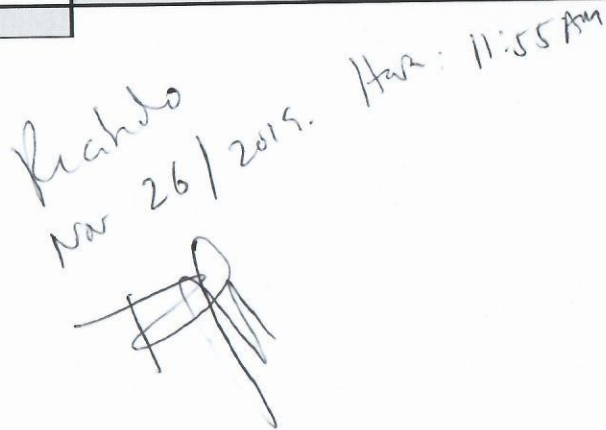 Recibido
Nov 26/2019. Hora: 11:55 AM